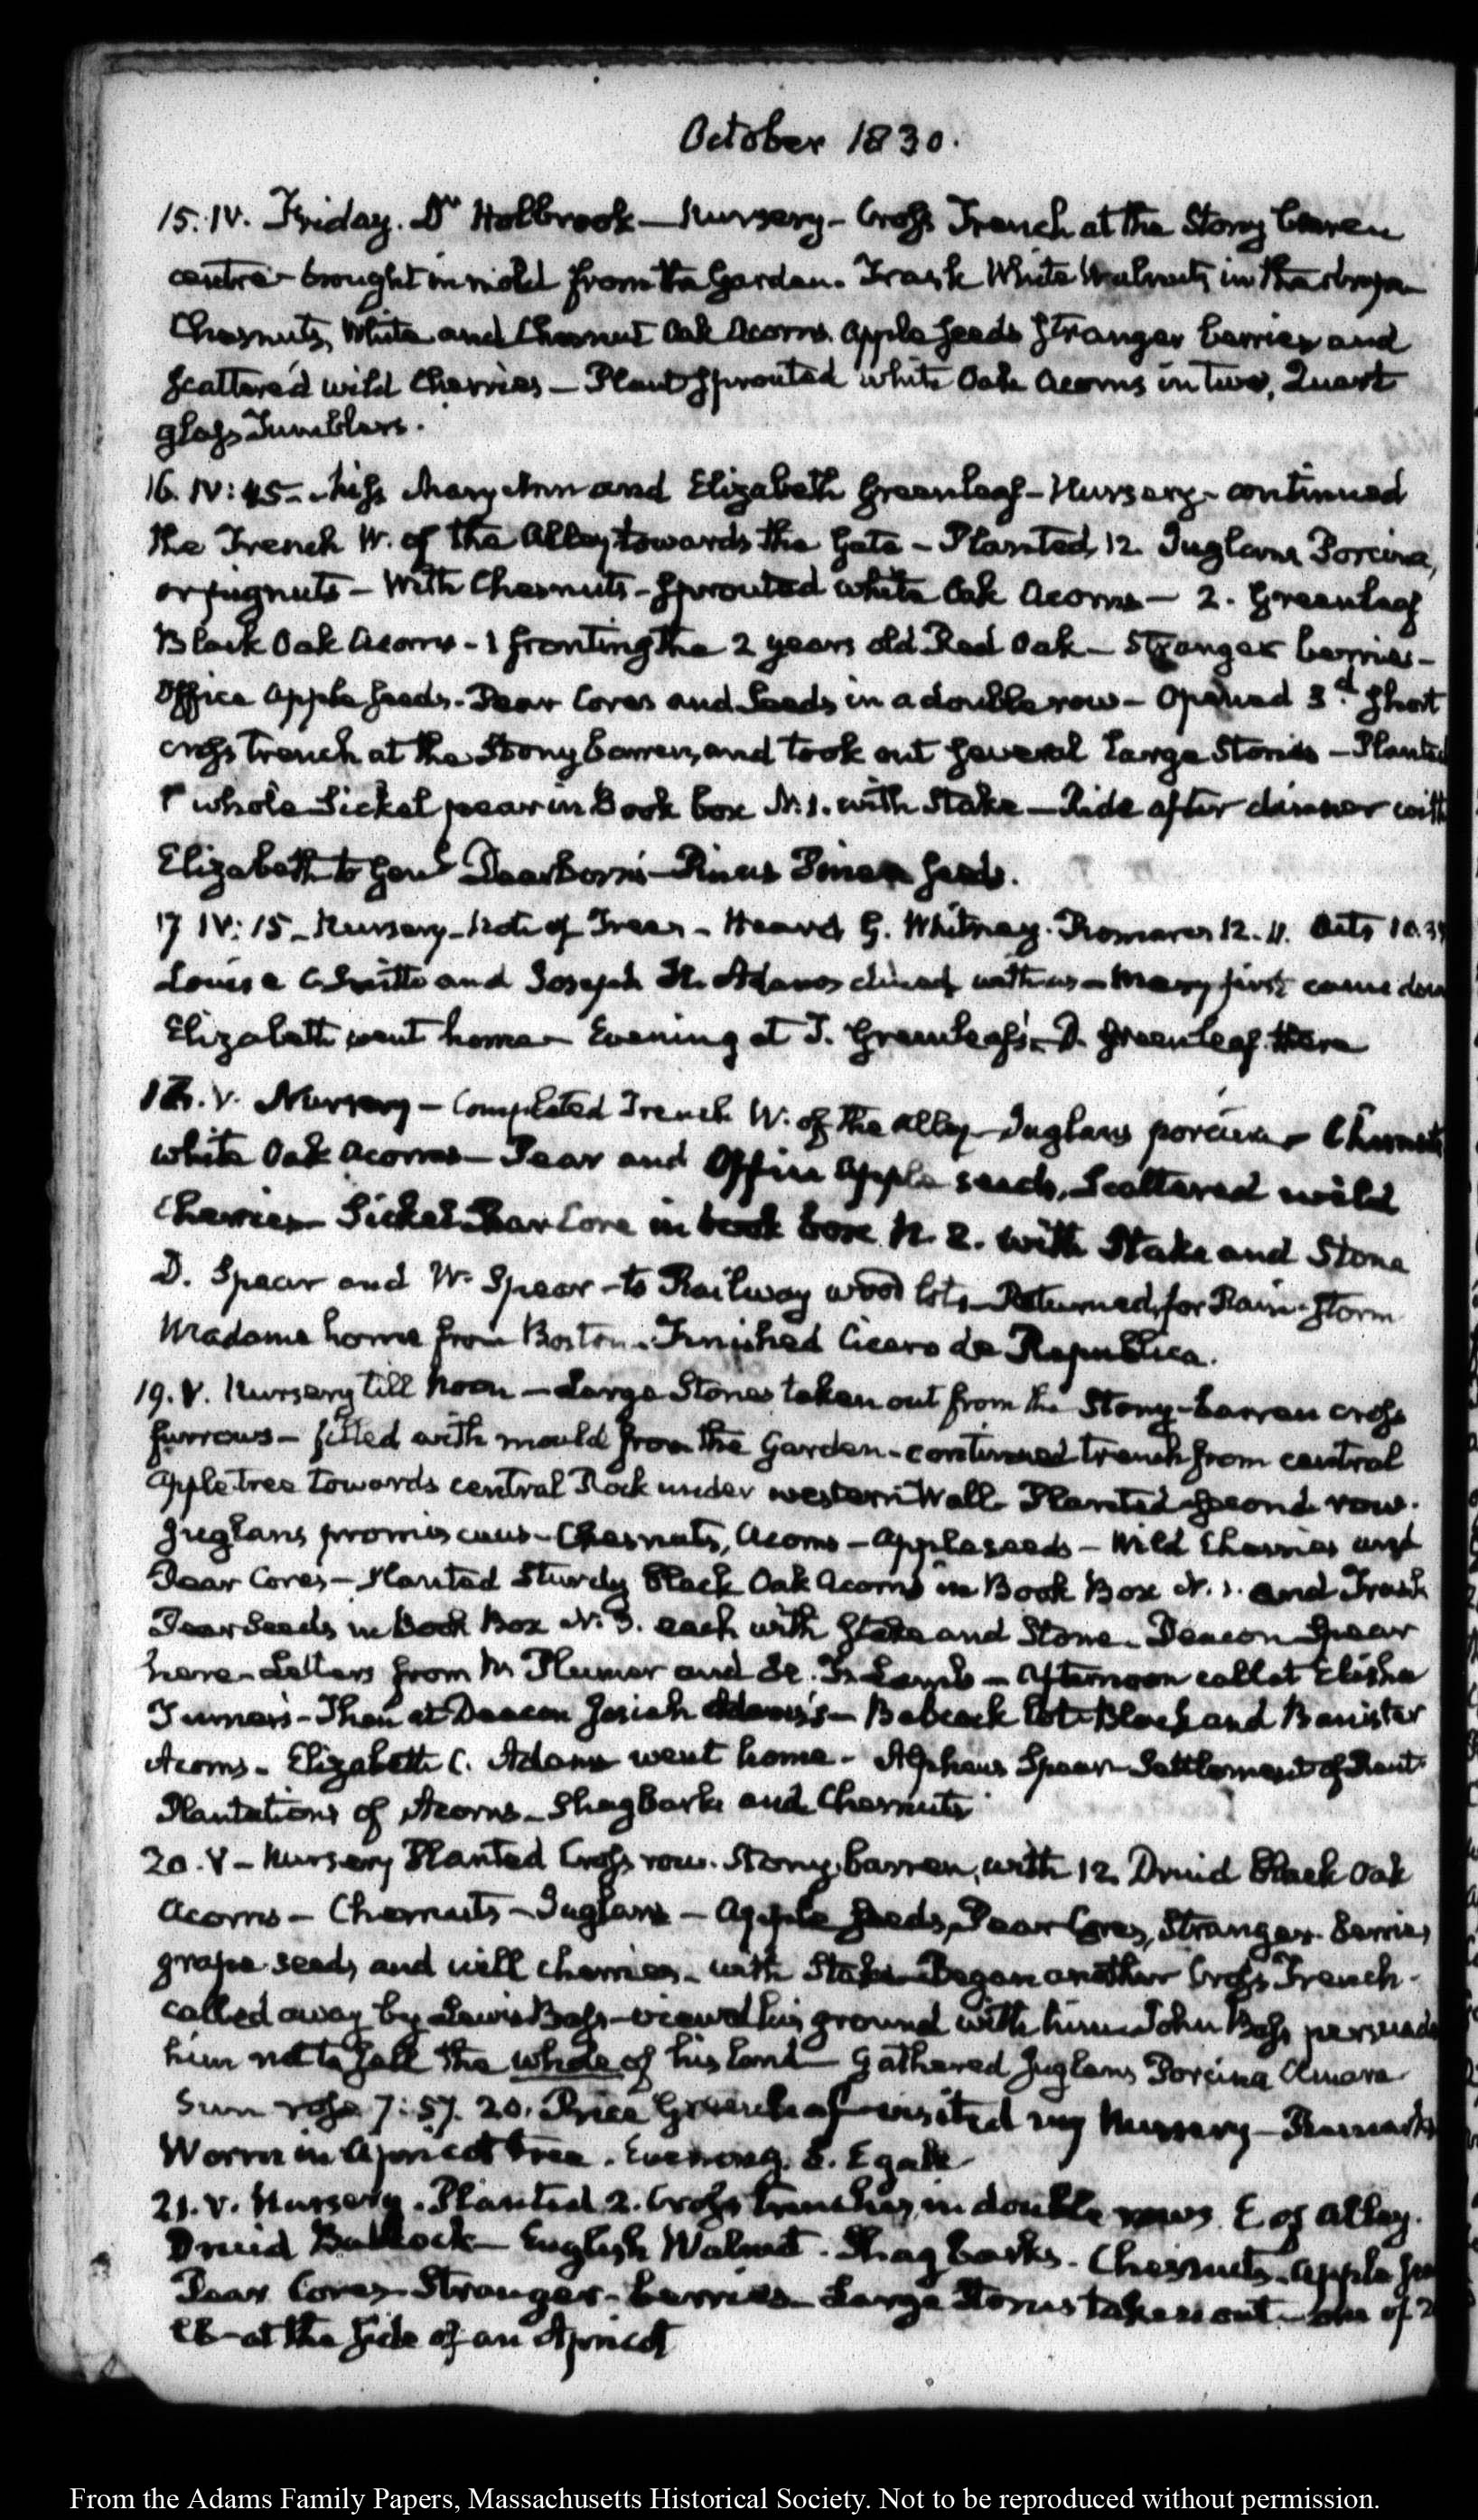 October 1830.
15. IV. Friday. Dr Holbrook — Nursery — Cross Trench at the Stony barren
centre — brought in mold from the Garden. Trask White Walnuts in the
Chesnuts, White and Chesnut Oak Acorns. Apple seeds Stranger berries and
scattered wild Cherries — Plant Sprouted white Oak Acorns in two, Quart
glass Tumblers.
16. IV: 45. Miss Mary Ann and Elizabeth Greenleaf — Nursery — continued
the Trench W. of the Alley towards the Gate — Planted 12. Juglans Porcina,
or pignuts — With Chesnuts — Sprouted white Oak Acorns — 2. Greenleaf
Black Oak Acorns — 1 fronting the 2 years old Red Oak — Stranger berries —
Office Apple seeds. Pear Cores and Seeds in a double row — Opened 3d. Short
cross trench at the Stony barren, and took out several large Stones — Planted
1 whole Sickel pear in Book box N. 1. with Stake — Ride after dinner with
Elizabeth to Genl Dearborn's — Pinus Pinea seeds.
17 IV: 15 — Nursery — Note of Trees — Heard G. Whitney. Romans 12. 11. Acts 10.
Louisa C. Smith and Joseph H. Adams dined with us — Mary first came down
Elizabeth went home — Evening at T. Greenleaf's — D. Greenleaf there
18. V. Nursery — Completed Trench W. of the Alley — Juglans porcina — Chesnuts
white Oak Acorns — Pear and Office Apple seeds, Scattered wild
Cherries — Sickel Pear Core in book box N. 2. with Stake and Stone
D. Spear and W. Spear — to Railway wood lots — Returned, for Rain-Storm
Madame home from Boston. Finished Cicero de Republica.
19. V. Nursery till Noon — Large Stones taken out from the Stony-barren cross
furrows — filled with mould from the Garden — continued trench from central
Apple tree towards central Rock under western Wall. Planted second row.
Juglans promiscuus — Chesnuts, Acorns — Apple seeds — Wild Cherries and
Pear Cores — Planted Sturdy Black Oak Acorns in Book Box N. 1. and Trask
Pear Seeds in Book Box N. 3. each with Stake and Stone — Deacon Spear
here — Letters from W Plumer and — Afternoon call at Elisha
Turner's — Then at Deacon Josiah Adams's — Babcock lot Black and Banister
Acorns. Elizabeth C. Adams went home — Alpheus Spear — Settlement of Rent
Plantations of Acorns — Shagbarks and Chesnuts
20. V — Nursery Planted Cross row. Stony barren, with 12 Druid Black Oak
Acorns — Chesnuts — Juglans — Apple Seeds, Pear Cores, Stranger Berries,
grape seeds and wild cherries — with Stake — Began another Cross Trench —
called away by Lewis Bass — viewed his ground with him — John Bass persuades
him not to sell the whole of his land — Gathered Juglans Porcina Amara
Sun rose 7: 57. 20. Price Greenleaf visited my Nursery — Remarks
Worm in Apricot tree. Evening.
21. V. Nursery. Planted 2. Cross trenches, in double rows E of Alley.
Druid Babcock — English Walnut. Shagbarks. Chesnuts. Apple
Pear Cores — Stranger-berries — Large Stones taken out — one of 2
at the side of an Apricot
From the Adams Family Papers, Massachusetts Historical Society. Not to be reproduced without permission.